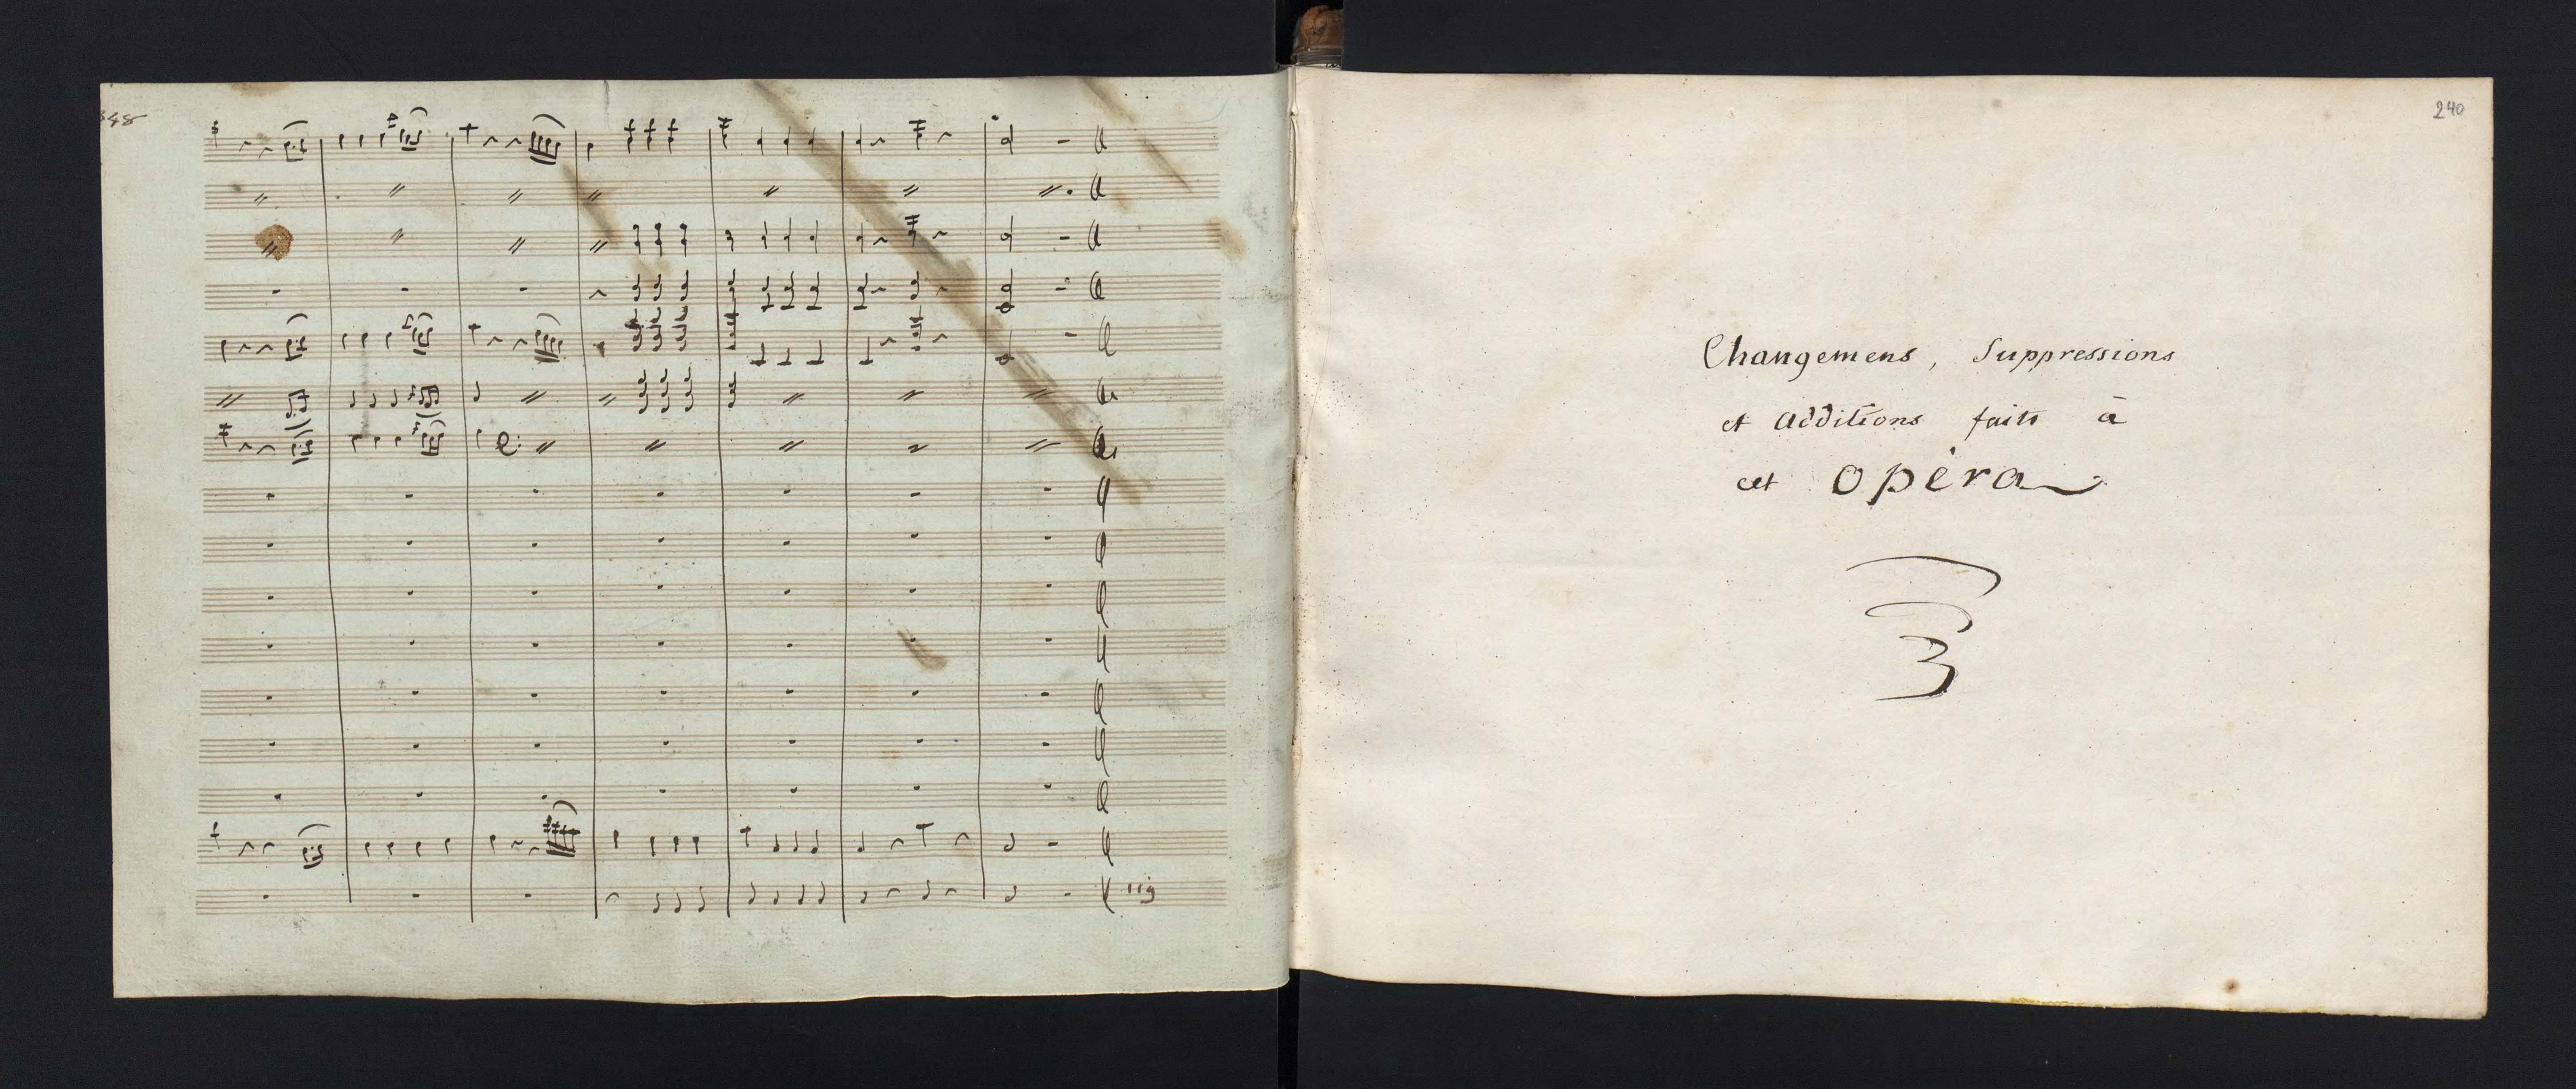 240
Changemens, Suppressions
et additions faits à
cet opéra
119